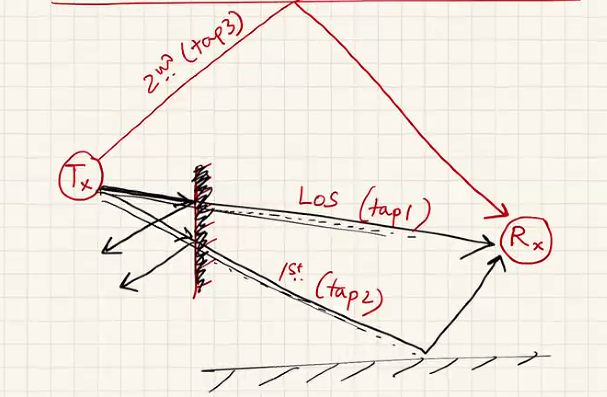 2nd (tap3)
Tx
LOS (tap1)
Rx
1st (tap2)